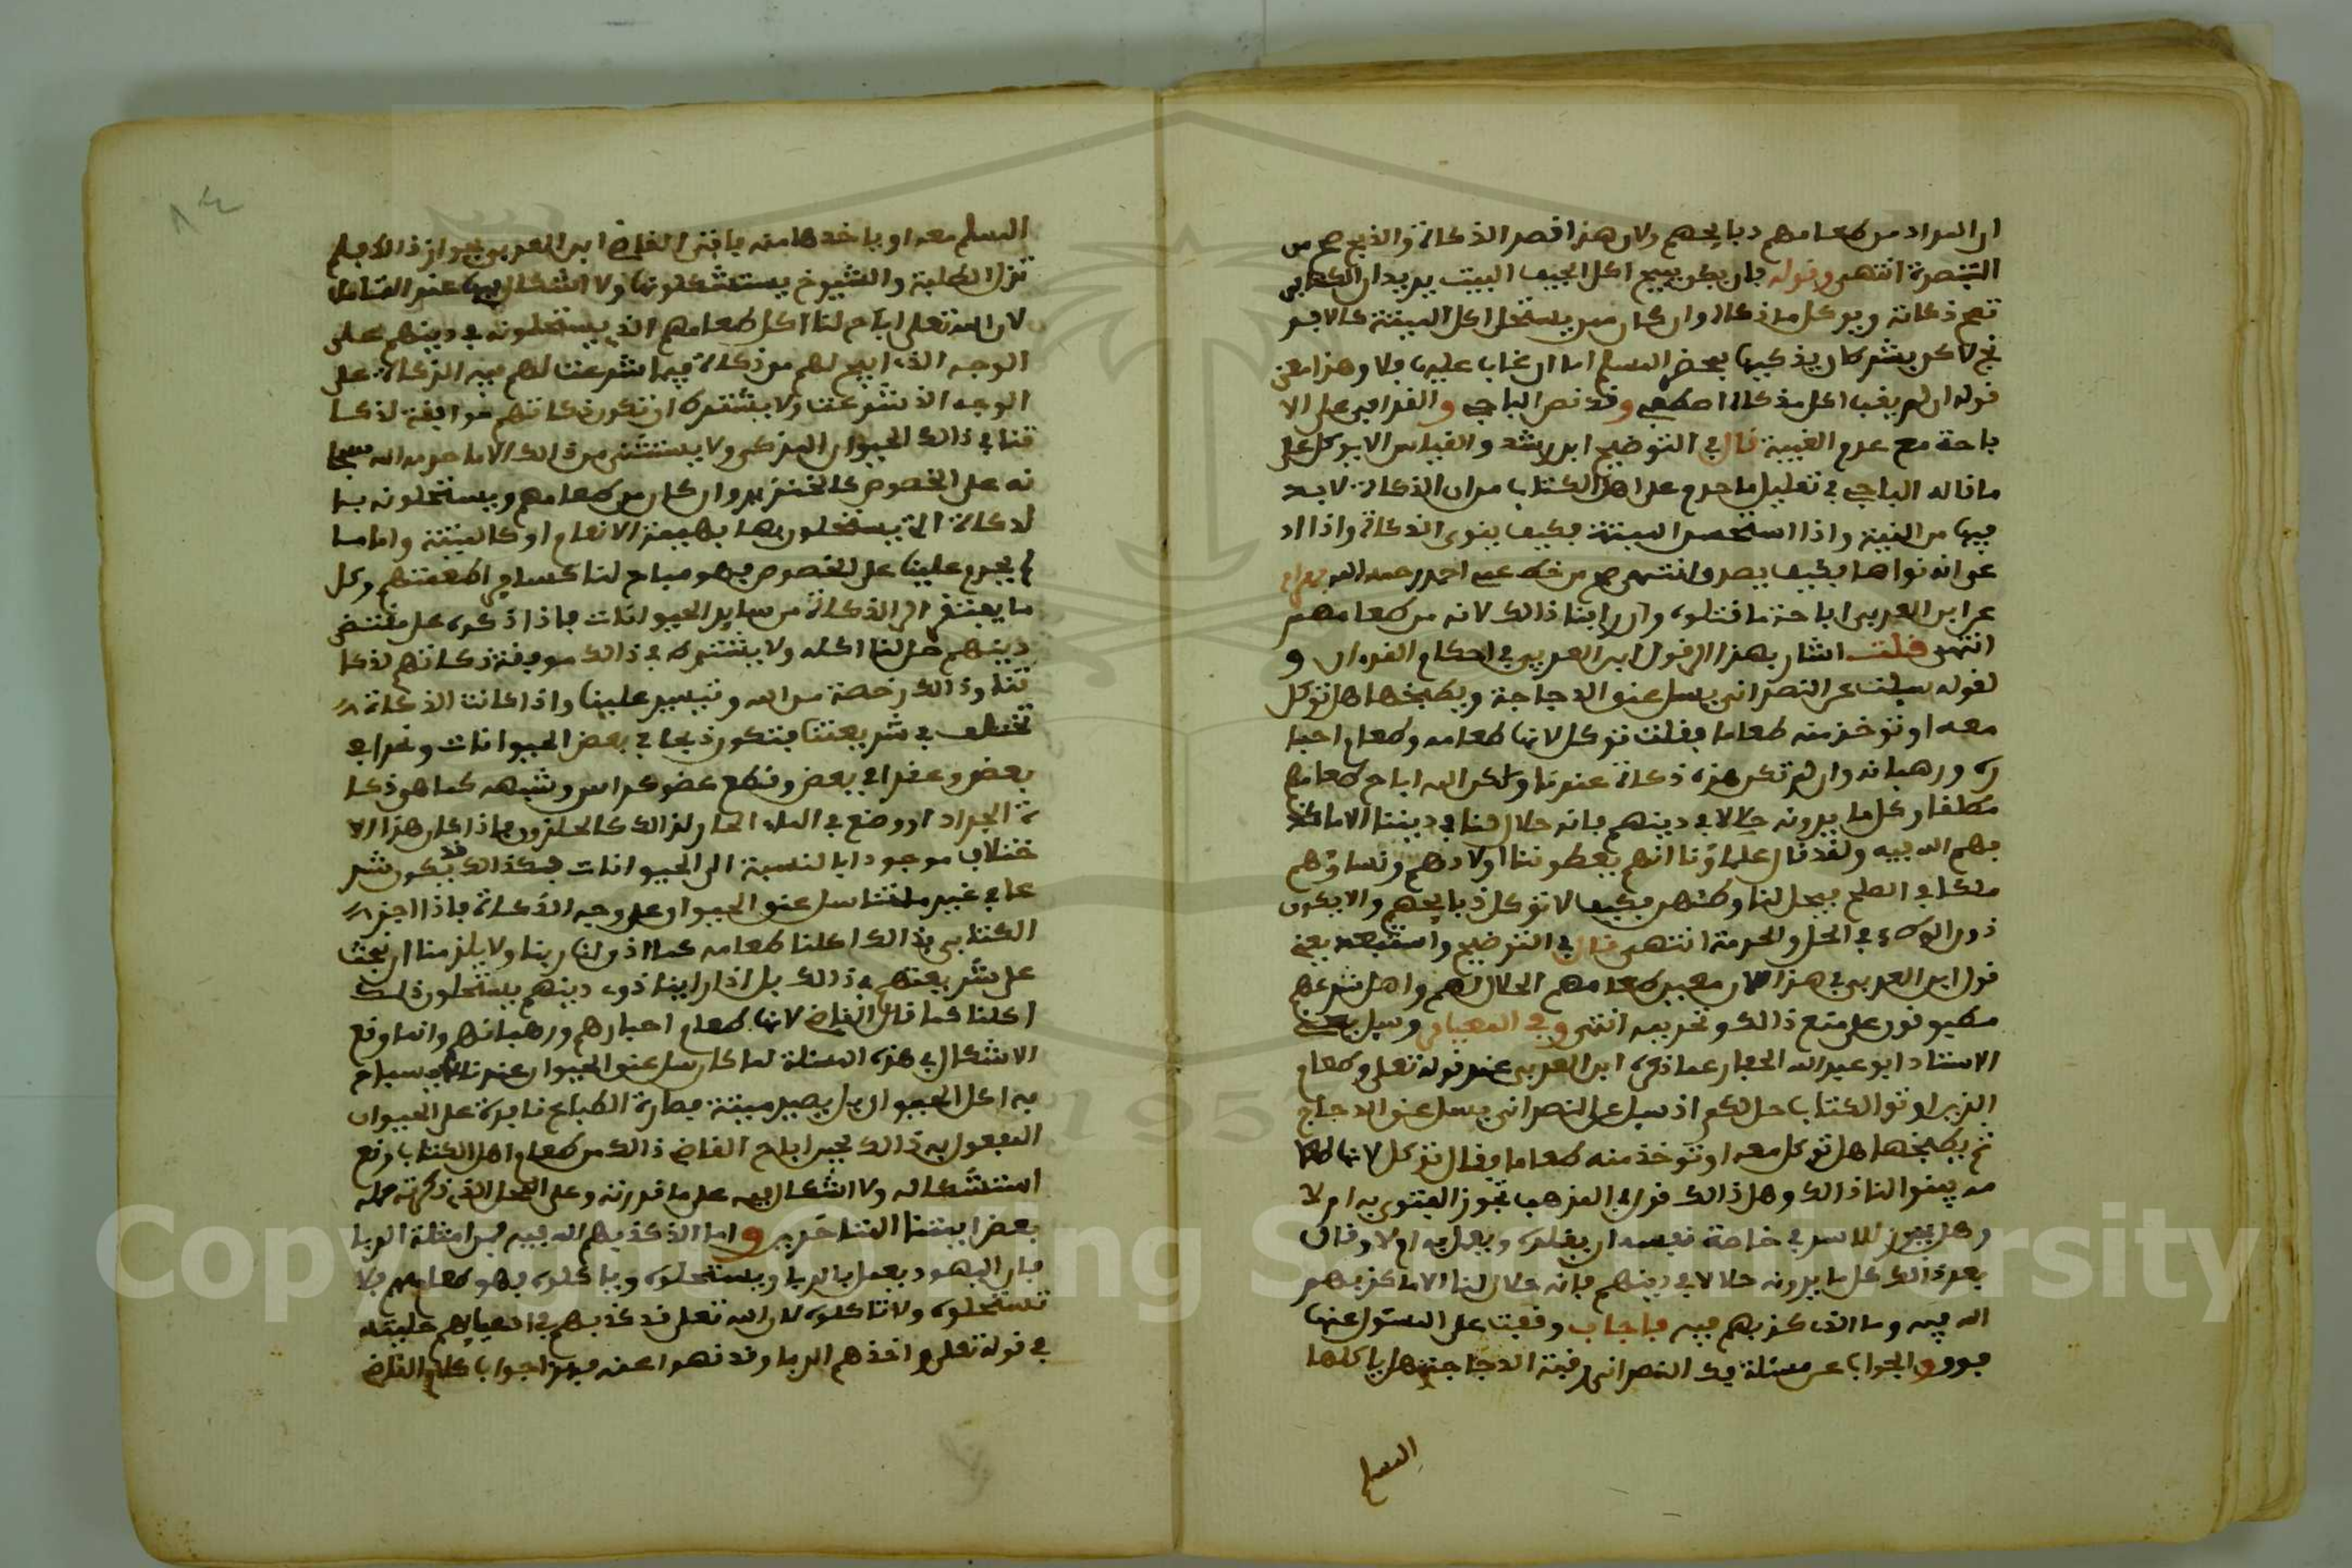 ان المراد من طعامهم ذبايحهم ولان هذا قصر الذكاة والذبح صح من
التبصرة انتهى وقوله فان يكن يبيح اكل الجيف البيت يريد ان الكتابي
تصح ذكاته ويوكل ما ذكاه وان كان ممن يستحل اكل الميتة كالافر
نج لاكن بشرط ان يذكيها بمحضر المسلم اما ان غاب عليها فلا وهذا معنى
قوله ان لم يغب اكل مذكاه اصطفي وقد نص الباجي والقرافي على الا
باحة مع عدم الغيبة قال في التوضيح ابن رشد والقياس الا يوكل على
ما قاله الباجي في تعليل ما حرم على اهل الكتاب من ان الذكاة لا بد
فيها من النية واذا استحل الميتة فكيف ينوي الذكاة واذا اد
عى انه نواها فكيف يصدق انتهى صح من خط عبد احمد رحمه الله
عن ابن العربي اباحة ما قتلوه وان راينا ذالك لانه من طعامهم
انتهى قلت اشار بهذا الى قول ابن العربي في احكام القرءان و
لقوله سيلت عن النصراني يسل عنق الدجاجة ويطبخها هل توكل
معه او توخذ منه طعاما فقلت توكل لانها طعامه وطعام احبا
ره ورهبانه وان لم تكن هذه ذكاة عندنا ولكن الله اباح طعامهم
مطلقا وكل ما يرونه حلالا في دينهم فانه حلال لنا في ديننا الا ما كذ
بهم الله فيه ولقد قال علماؤنا انهم يعطوننا اولادهم ونساؤهم
ملكا في الصلح فيحل لنا وطئهن فكيف لا توكل ذبايحهم والاكل
دون الوطء في الحل والحرمة انتهى قال في التوضيح واستبعد يعني
قول ابن العربي في هذا لان معنى طعامهم الحلال لهم واهل شرعهم
مطبقون على منع ذالك وتحريمه انتهى وفي المعيار وسيل
الاستاد ابو عبد الله الحفار عما ذكره ابن العربي عند قوله تعلى وطعام
الذين اوتوا الكتاب حل لكم اذ سيل عن النصراني يسل عنق الدجاج
ثم يطبخها هل توكل معه او توخذ منه طعاما فقال توكل لانها طعا
مه بينوا لنا ذالك وهل ذالك قول في المذهب تجوز الفتوى به ام لا
وهل يجوز للانسان في خاصة نفسه ان يقلده ويعمل به ام لا وقال
بعد ذالك كل ما يرونه حلالا في دينهم فانه حلال لنا الا ما كذبهم
الله فيه وما الذي كذبهم فيه فاجاب وقفت على السؤل عنها
فوق والجواب عن مسئلة فك النصراني رقبة الدجاجة هل ياكلها
المسلم
المسلم معه او ياخدها منه فافتى القاضي ابن العربي بجواز ذالك فلم
تزل الطلبة والشيوخ يستشكلونها ولا اشكال فيها عند التامل
لان الله تعلى اباح لنا اكل طعامهم الذي يستحلونه في دينهم على
الوجه الذي ابيح لهم من ذكاة فيما شرعت لهم فيه الذكاة على
الوجه الذي شرعت ولا يشترط ان تكون ذكاتهم موافقة لذكا
تنا في ذالك الحيوان المذكى ولا يستثنى من ذالك الا ما حرمه الله سبحا
نه على الخصوص كالخنزير وان كان من طعامهم ويستحلونه با
لذكاة التي يستحلون بها بهيمة الانعام او كالميتة واما ما
لم يحرم علينا على الخصوص فهو مباح لنا كساير اطعمتهم وكل
ما يفتقر الى الذكاة من ساير الحيوانات فاذا ذكوه على مقتضى
دينهم حل لنا اكله ولا يشترط في ذالك موافقة ذكاتهم لذكا
تنا وذالك رخصة من الله وتيسير علينا واذا كانت الذكاة
تختلف في شريعتنا فتكون ذبحا في بعض الحيوانات ونحرا في
بعض وعقرا في بعض وقطع عضو كراس وشبهه كما هو ذكا
ة الجراد او وضع في الماء الحار لذالك كالحلزون فاذا كان هذا الا
ختلاف موجودا بالنسبة الى الحيوانات فكذالك قد يكون شر
عا في غير ملتنا سل عنق الحيوان على وجه الذكاة فاذا اجتز
الكتابي ذالك اكلنا طعامه كما اذن لنا ربنا ولا يلزمنا ان نبحث
على شريعتهم في ذالك بل اذا راينا ذوي دينهم يستحلون ذالك
اكلنا كما قال القاضي لانها طعام احبارهم ورهبانهم وانما وقع
الاشكال في هذه المسئلة لما كان سل عنق الحيوان عندنا لا يستباح
به اكل الحيوان بل يصير ميتة فصارة الطباع نافرة على الحيوان
المفعول به ذالك فحين اباح القاضي ذالك من طعام اهل الكتاب وقع
استشكاله ولا اشكال فيه على ما قررته وعلى المحل الذي ذكرته حمله
بعض ايمتنا المتاخرين واما الذي كذبهم الله فيه فمن امثلة الربا
فان اليهود يعمل بالربا ويستحلوه وياكلوه فهو طعامهم فلا
نستحلوه ولا ناكلوه لان الله تعلى قد كذبهم في افعالهم عليه
في قوله تعلى واخذهم الربا وقد نهوا عنه فهذا جواب كلام القاضي